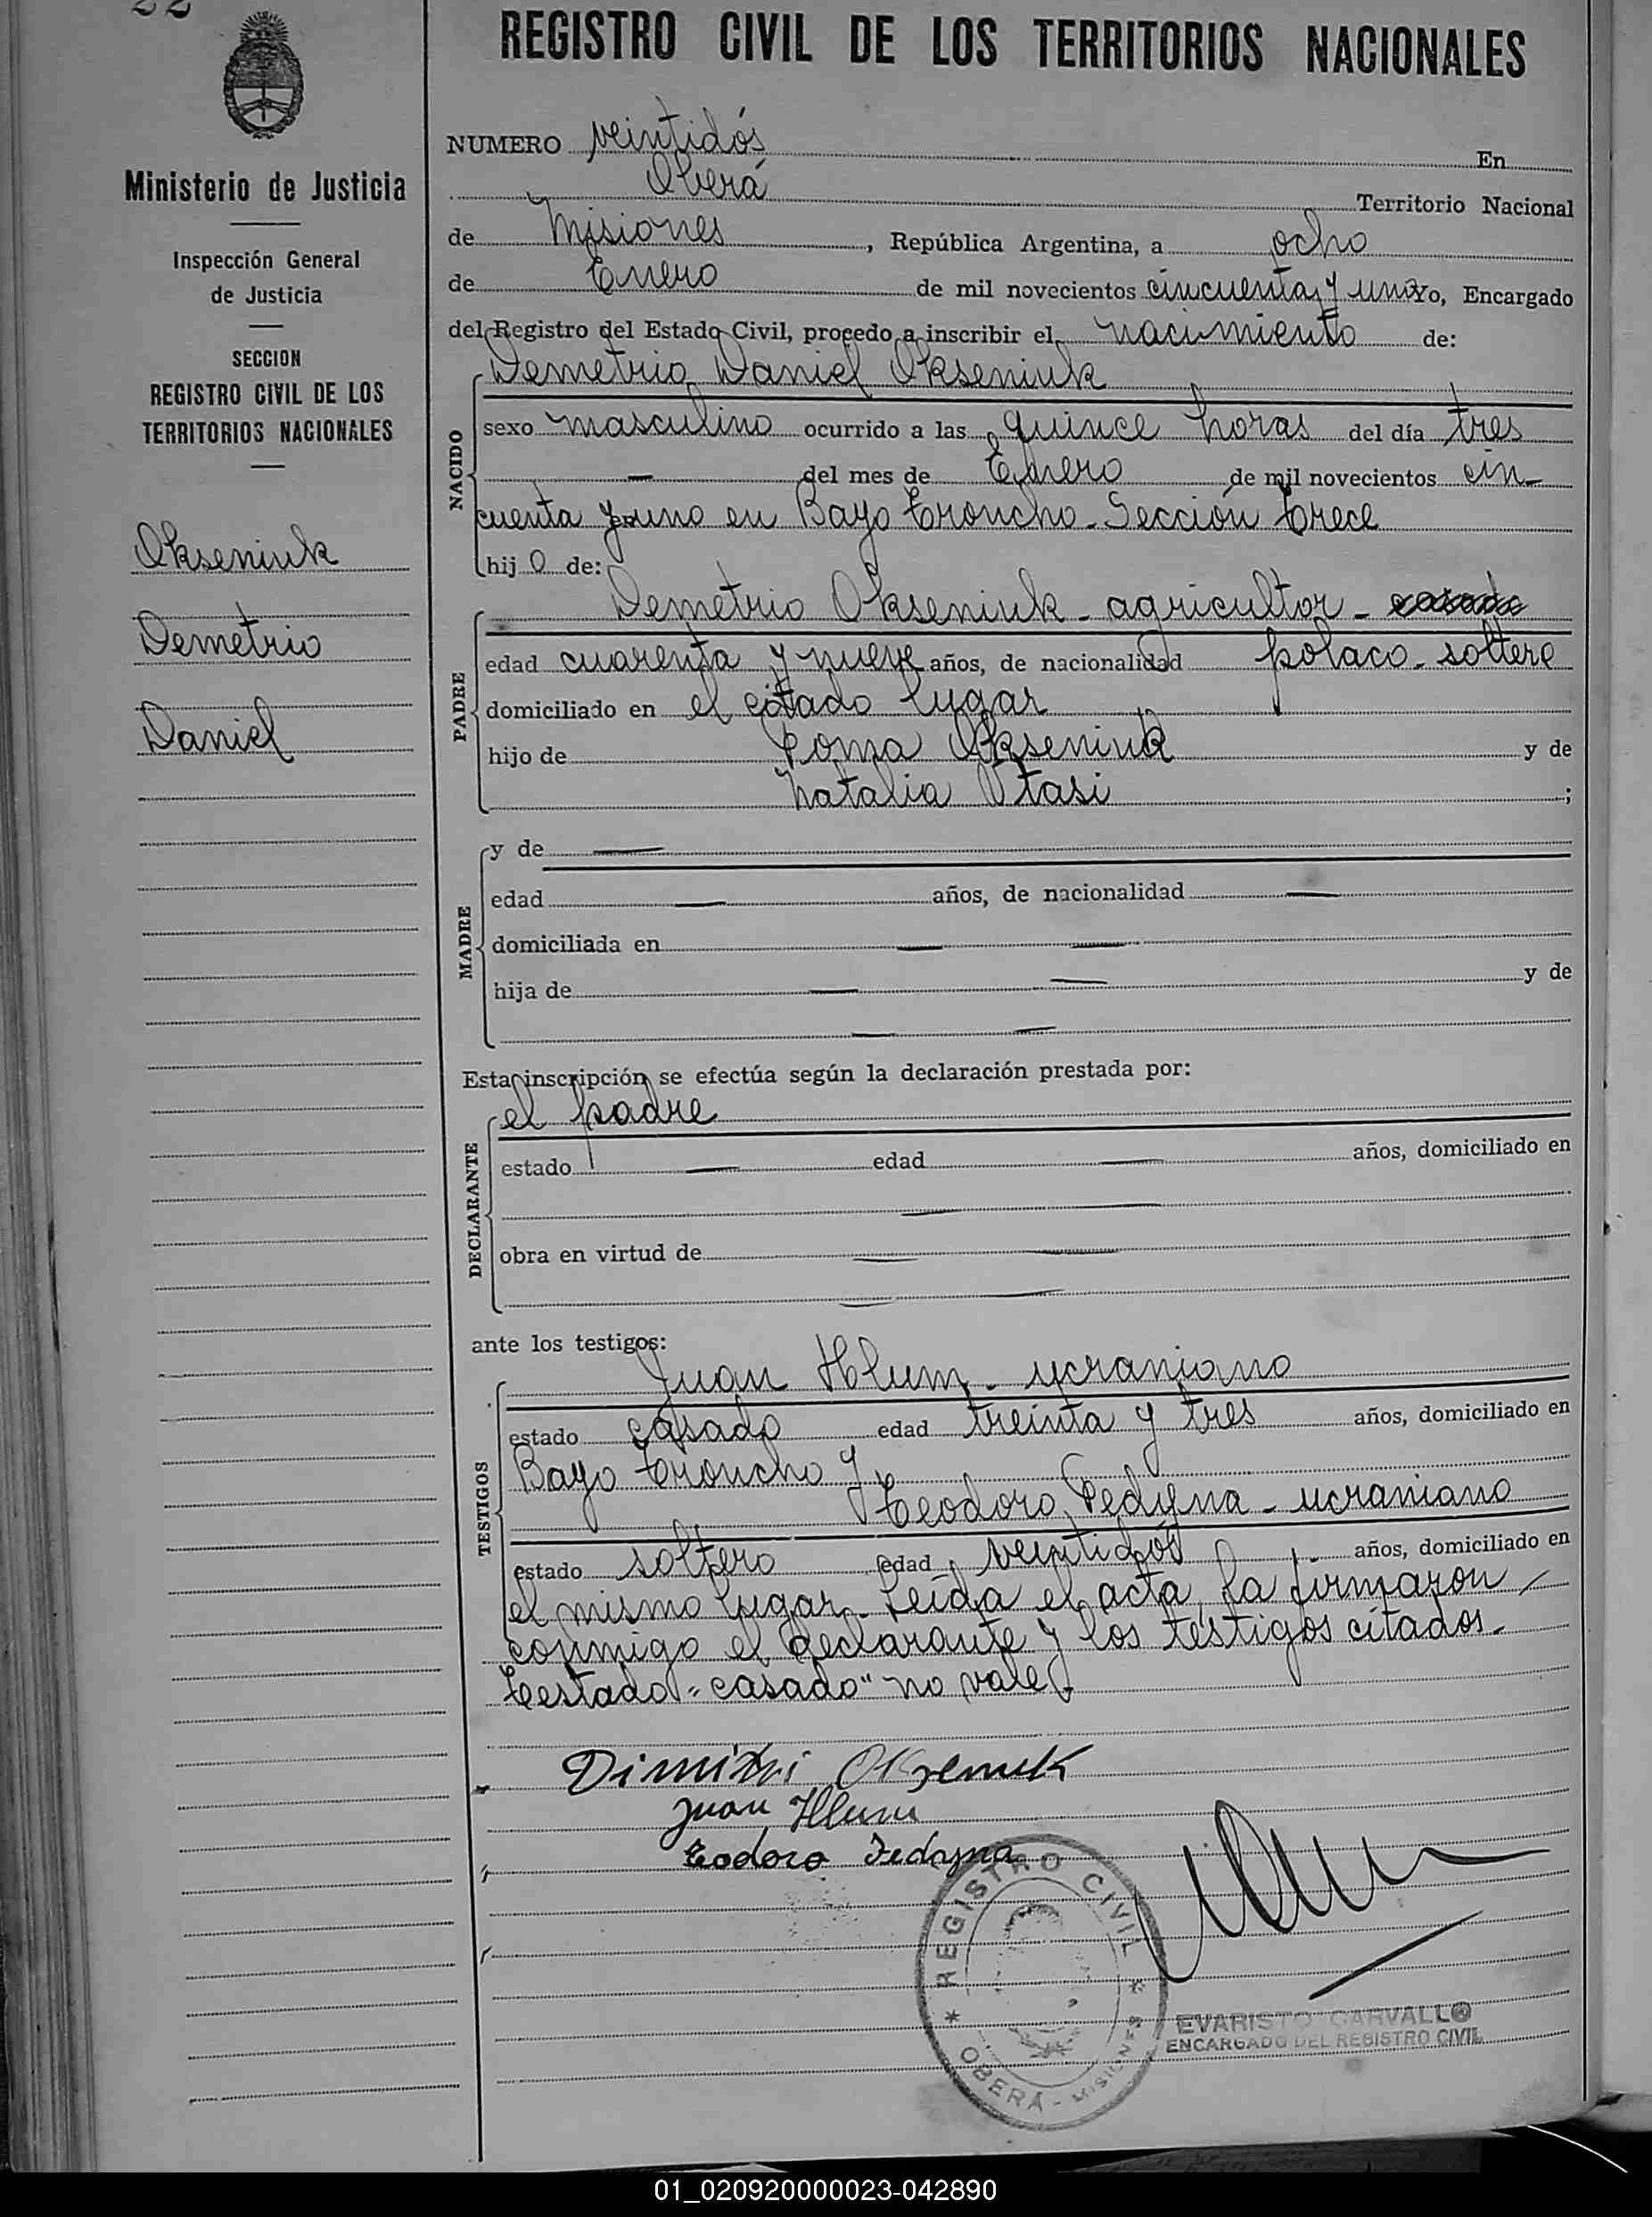 22
REGISTRO CIVIL DE LOS TERRITORIOS NACIONALES
Ministerio de Justicia
Inspección General
de Justicia
SECCION
REGISTRO CIVIL DE LOS
TERRITORIOS NACIONALES
Okseniuk
Demetrio
Daniel
NUMERO veintidós En
Oberá Territorio Nacional
de Misiones, República Argentina, a ocho
de Enero de mil novecientos cincuenta y uno Yo, Encargado
del Registro del Estado Civil, procedo a inscribir el nacimiento de:
Demetrio Daniel Okseniuk
NACIDO
sexo masculino ocurrido a las quince horas del día tres
— del mes de Enero de mil novecientos cin-
cuenta y uno en Bayo Troncho - Sección trece
hij o de:
PADRE
Demetrio Okseniuk - agricultor - casado
edad cuarenta y nueve años, de nacionalidad polaco - soltero
domiciliado en el citado lugar
hijo de Toma Okseniuk y de
Natalia Ptasi;
MADRE
y de —
edad — años, de nacionalidad —
domiciliada en — —
hija de — — y de
— —
Esta inscripción se efectúa según la declaración prestada por:
DECLARANTE
el padre
estado — edad — años, domiciliado en
— —
obra en virtud de — —
— —
ante los testigos:
TESTIGOS
Juan Hlum - ucraniano
estado casado edad treinta y tres años, domiciliado en
Bayo Troncho y
Teodoro Fedyna - ucraniano
estado soltero edad veintidós años, domiciliado en
el mismo lugar. Leída el acta, la firmaron
conmigo el declarante y los testigos citados.
Testado: "casado" no vale.
Dimitri Okseniuk
Juan Hlum
Teodoro Fedyna
REGISTRO CIVIL
OBERÁ - MISIONES
EVARISTO CARVALLO
ENCARGADO DEL REGISTRO CIVIL
01_020920000023-042890